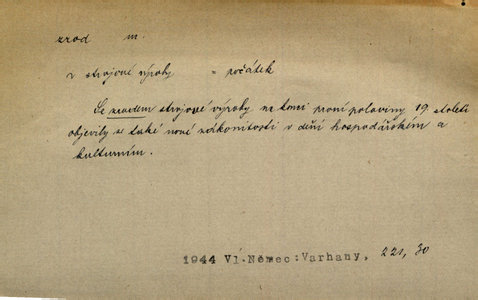 zrod m.
z strojové výroby = počátek
Se zrodem strojové výroby na konci první poloviny 19 století
objevily se také nové zákonitosti v dění hospodářském a
kulturním.
1944 Vl.Němec:Varhany, 221, 30